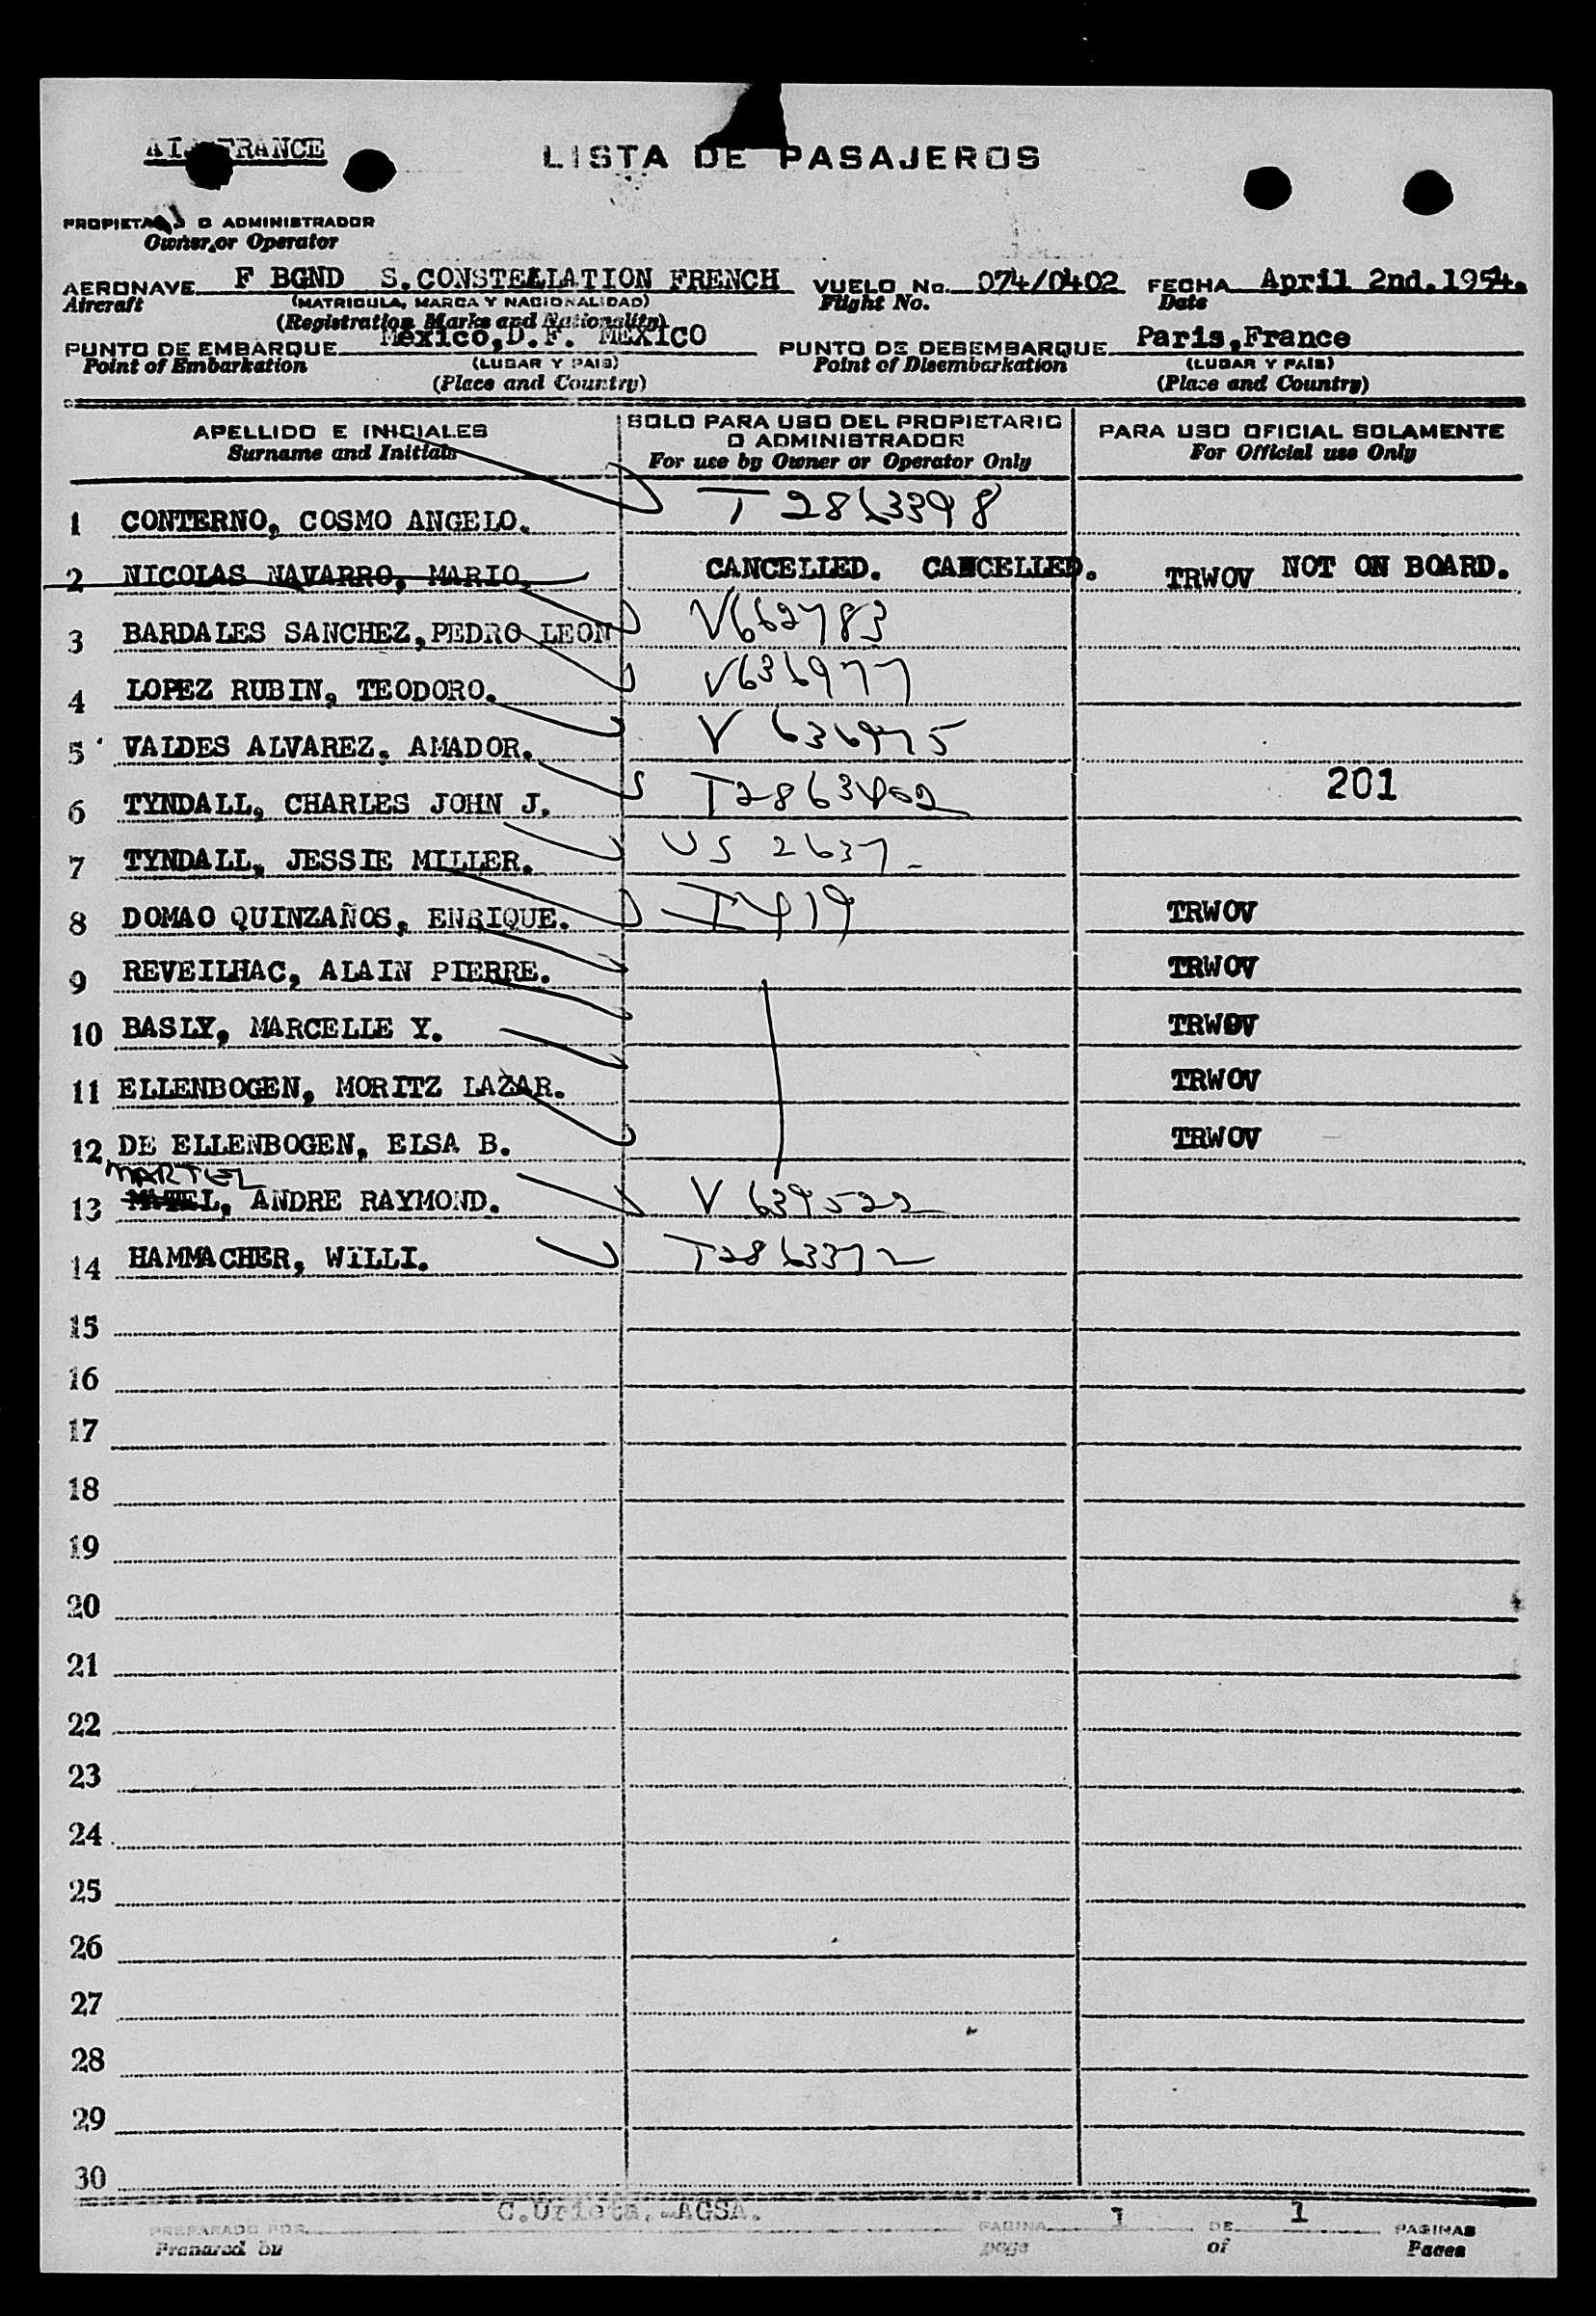 LISTA DE PASAJEROS
O ADMINISTRADOR
Owner or Operator
AERONAVE F BGND S.CONSTELLATION FRENCH VUELO No. 074/0402 FECHA April 2nd.1954.
Aircraft (MATRICULA, MARCA Y NACIONALIDAD) Flight No. Date
(Registration Marks and Nationality)
PUNTO DE EMBARQUE Mexico,D.F. MEXICO PUNTO DE DESEMBARQUE Paris,France
Point of Embarkation (LUGAR Y PAIS) Point of Disembarkation (LUGAR Y PAIS)
(Place and Country) (Place and Country)
APELLIDO E INICIALES SOLO PARA USO DEL PROPIETARIO PARA USO OFICIAL SOLAMENTE
Surname and Initials O ADMINISTRADOR For Official use Only
For use by Owner or Operator Only
1 CONTERNO, COSMO ANGELO. T 2863398
2 NICOLAS NAVARRO, MARIO. CANCELLED. CANCELLED. TRWOV NOT ON BOARD.
3 BARDALES SANCHEZ,PEDRO LEON V662783
4 LOPEZ RUBIN, TEODORO. V636977
5 VALDES ALVAREZ, AMADOR. V 636975
6 TYNDALL, CHARLES JOHN J. T2863402 201
7 TYNDALL, JESSIE MILLER. US 2637
8 DOMAO QUINZAÑOS, ENRIQUE. I419 TRWOV
9 REVEILHAC, ALAIN PIERRE. TRWOV
10 BASLY, MARCELLE Y. TRWOV
11 ELLENBOGEN, MORITZ LAZAR. TRWOV
12 DE ELLENBOGEN, ELSA B. TRWOV
MARTEL
13 ANDRE RAYMOND. V 639522
14 HAMMACHER, WILLI. T2863372
15
16
17
18
19
20
21
22
23
24
25
26
27
28
29
30
PREPARADO POR C.Urista.-AGSA. PAGINA 1 DE 1 PAGINAS
Prepared by page of Pages